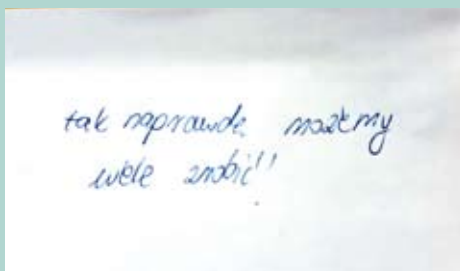 tak naprawdę możemy
wiele zrobić!!